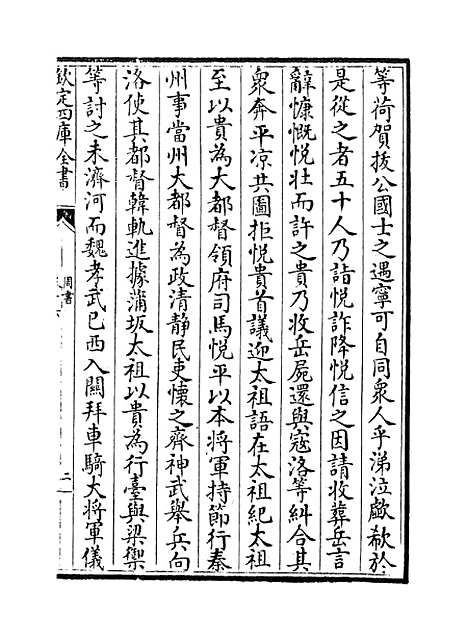 等荷賀拔公國士之遇寧可自同衆人乎涕泣歔欷於
是從之者五十人乃詣悦詐降悦信之因請收葬岳言
辭慷慨悦壯而許之貴乃收岳屍還與寇洛等糾合其
衆奔平凉共圖拒悦貴首議迎太祖語在太祖紀太祖
至以貴為大都督領府司馬悦平以本將軍持節行秦
州事當州大都督為政清静民吏懷之齊神武舉兵向
洛使其都督韓軌進據蒲坂太祖以貴為行臺與梁禦
等討之未濟河而魏孝武已西入關拜車騎大將軍儀
欽定四庫全書
周書
二